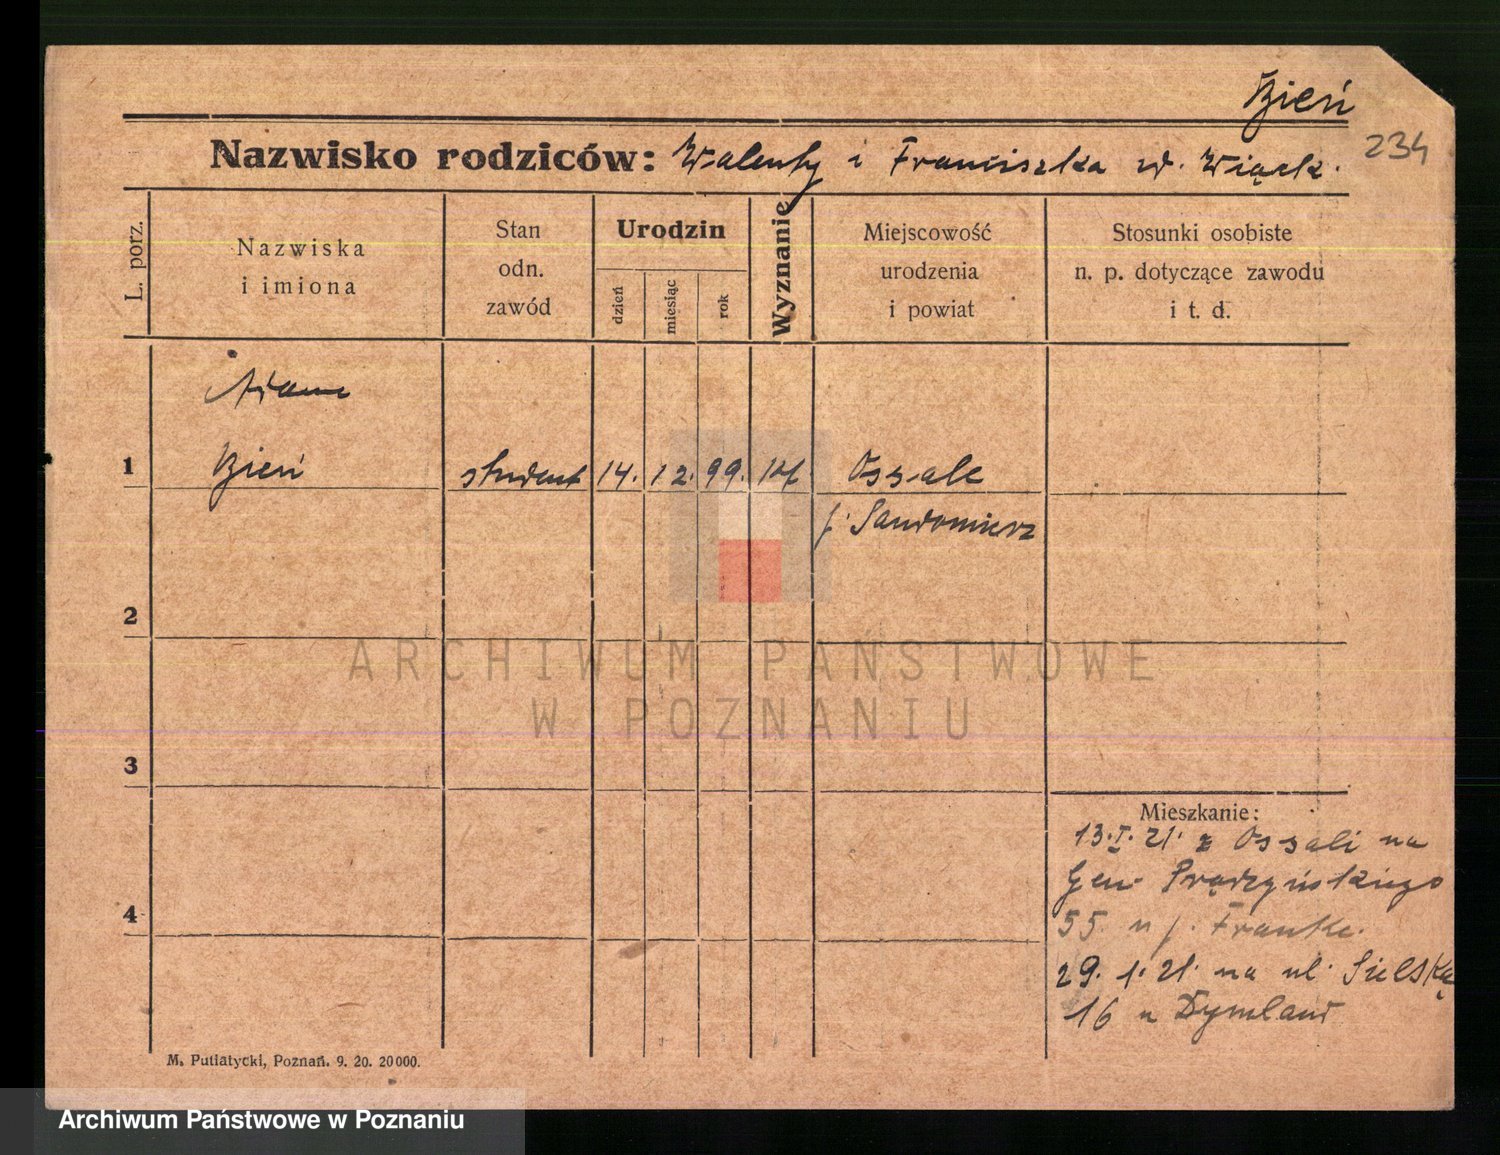 Bień
234
Nazwisko rodziców: Walenty i Franciszka
L. porz.
Nazwiska
i imiona
Stan
odn.
zawód
Urodzin
dzień
miesiąc
rok
Wyznanie
Miejscowość
urodzenia
i powiat
Stosunki osobiste
n. p. dotyczące zawodu
i t. d.
Adam
1 Bień student 14. 12. 99. Ossale
Sandomierz
2
3
4
Mieszkanie:
13. I. 21. z Ossali na
Gen. Prądzyńskiego
55 Franke.
29. 1. 21. na ul. Sielską
16 u Dymland
M. Putiatycki, Poznań. 9. 20. 20000.
ARCHIWUM PAŃSTWOWE
W POZNANIU
Archiwum Państwowe w Poznaniu